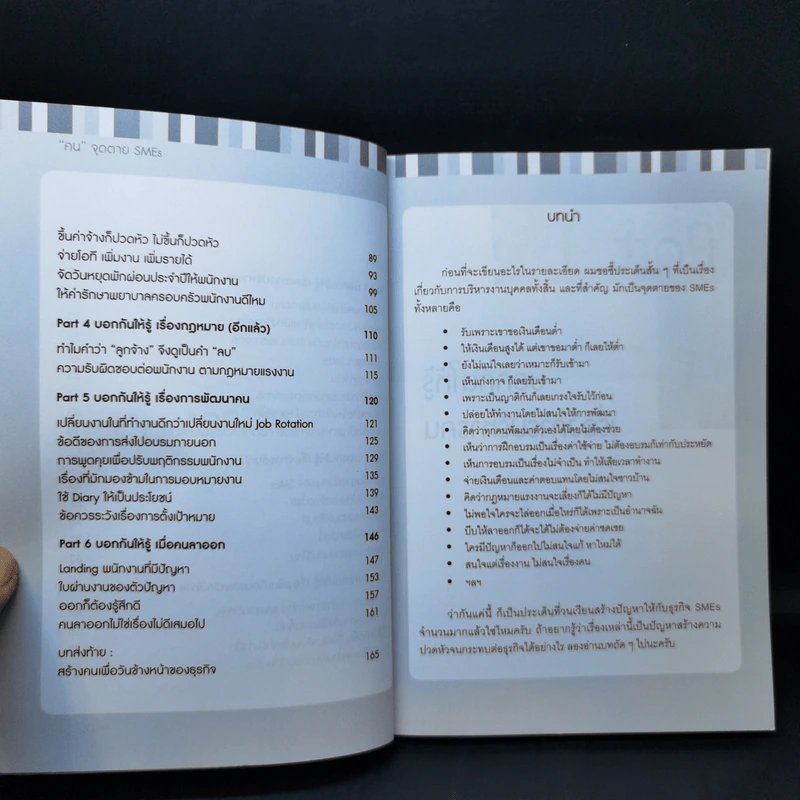 "คน" จุดตาย SMEs
ขึ้นค่าจ้างก็ปวดหัว ไม่ขึ้นก็ปวดหัว 89
จ่ายโอที เพิ่มงาน เพิ่มรายได้ 93
จัดวันหยุดพักผ่อนประจำปีให้พนักงาน 99
ให้ค่ารักษาพยาบาลครอบครัวพนักงานดีไหม 105
Part 4 บอกกันให้รู้ เรื่องกฎหมาย (อีกแล้ว) 110
ทำไมคำว่า "ลูกจ้าง" จึงดูเป็นคำ "ลบ" 111
ความรับผิดชอบต่อพนักงาน ตามกฎหมายแรงงาน 115
Part 5 บอกกันให้รู้ เรื่องการพัฒนาคน 120
เปลี่ยนงานในที่ทำงานดีกว่าเปลี่ยนงานใหม่ Job Rotation 121
ข้อดีของการส่งไปอบรมภายนอก 125
การพูดคุยเพื่อปรับพฤติกรรมพนักงาน 129
เรื่องที่มักมองข้ามในการมอบหมายงาน 135
ใช้ Diary ให้เป็นประโยชน์ 139
ข้อควรระวังเรื่องการตั้งเป้าหมาย 143
Part 6 บอกกันให้รู้ เมื่อคนลาออก 146
Landing พนักงานที่มีปัญหา 147
ใบผ่านงานของตัวปัญหา 153
ออกก็ต้องรู้สึกดี 157
คนลาออกไม่ใช่เรื่องไม่ดีเสมอไป 161
บทส่งท้าย :
สร้างคนเพื่อวันข้างหน้าของธุรกิจ 165
บทนำ
ก่อนที่จะเขียนอะไรในรายละเอียด ผมขอชี้ประเด็นสั้น ๆ ที่เป็นเรื่อง
เกี่ยวกับการบริหารงานบุคคลทั้งสิ้น และที่สำคัญ มักเป็นจุดตายของ SMEs
ทั้งหลายคือ
• รับเพราะเขาขอเงินเดือนต่ำ
• ให้เงินเดือนสูงได้ แต่เขาขอมาต่ำ ก็เลยให้ต่ำ
• ยังไม่แน่ใจเลยว่าเหมาะก็รับเข้ามา
• เห็นเก่งกาจ ก็เลยรับเข้ามา
• เพราะเป็นญาติกันก็เลยเกรงใจรับไว้ก่อน
• ปล่อยให้ทำงานโดยไม่สนใจให้การพัฒนา
• คิดว่าทุกคนพัฒนาตัวเองได้โดยไม่ต้องช่วย
• เห็นว่าการฝึกอบรมเป็นเรื่องค่าใช้จ่าย ไม่ต้องอบรมก็เท่ากับประหยัด
• เห็นการอบรมเป็นเรื่องไม่จำเป็น ทำให้เสียเวลาทำงาน
• จ่ายเงินเดือนและค่าตอบแทนโดยไม่สนใจชาวบ้าน
• คิดว่ากฎหมายแรงงานจะเลี่ยงก็ได้ไม่มีปัญหา
• ไม่พอใจใครจะไล่ออกเมื่อไหร่ก็ได้เพราะเป็นอำนาจฉัน
• บีบให้ลาออกก็ได้จะได้ไม่ต้องจ่ายค่าชดเชย
• ใครมีปัญหาก็ออกไปไม่สนใจแก้ หาใหม่ได้
• สนใจแต่เรื่องงาน ไม่สนใจเรื่องคน
• ฯลฯ
ว่ากันแค่นี้ ก็เป็นประเด็นที่วนเวียนสร้างปัญหาให้กับธุรกิจ SMEs
จำนวนมากแล้วใช่ไหมครับ ถ้าอยากรู้ว่าเรื่องเหล่านี้เป็นปัญหาสร้างความ
ปวดหัวจนกระทบต่อธุรกิจได้อย่างไร ลองอ่านบทถัด ๆ ไปนะครับ